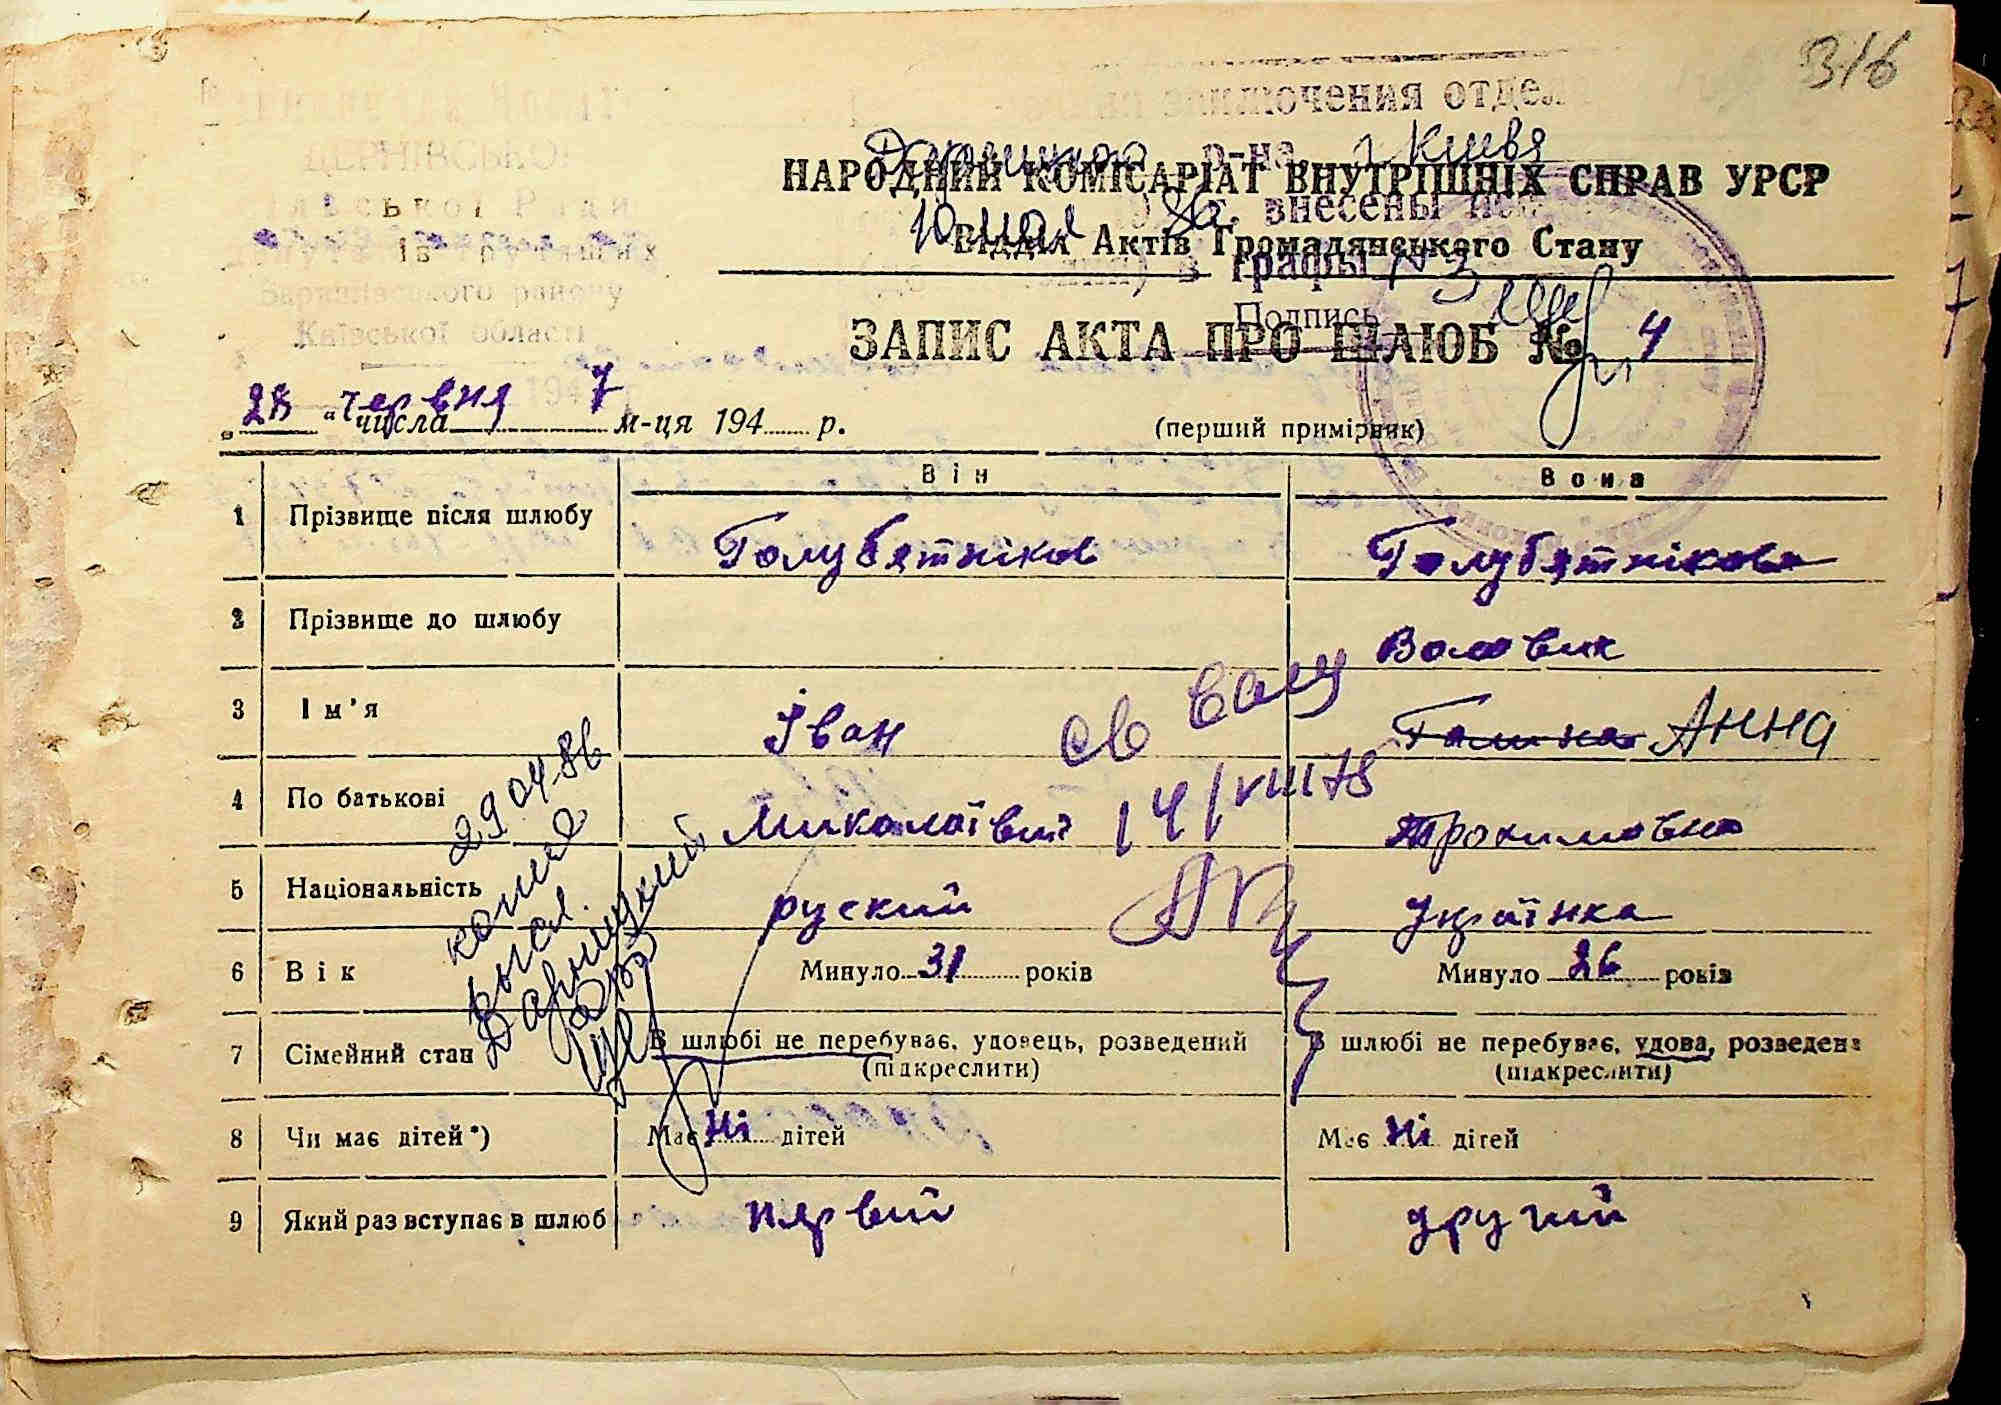 316
заключения отдела
Дарницкого р-на г. Киева
НАРОДНИЙ КОМІСАРІАТ ВНУТРІШНІХ СПРАВ УРСР
10 мая внесены
Відділ Актів Громадянського Стану
графы № 3
Подпись
ЗАПИС АКТА ПРО ШЛЮБ № 4
Баришівського району
Київської області
„28 “ числа червня 7 м-ця 194 р.
(перший примірник)
Він Вона
1 Прізвище після шлюбу Голубятніков Голубятнікова
2 Прізвище до шлюбу Воловик
3 Ім'я Іван Галина Анна
св
14/VIII 78
4 По батькові Миколаївич Трохимовна
5 Національність руский Українка
6 Вік Минуло 31 років Минуло 26 років
7 Сімейний стан В шлюбі не перебуває, удовець, розведений В шлюбі не перебуває, удова, розведена
(підкреслити) (підкреслити)
8 Чи має дітей*) Має ні дітей Має ні дітей
9 Який раз вступає в шлюб первий другий
29 04 86
копия
высл.
Дарницкий